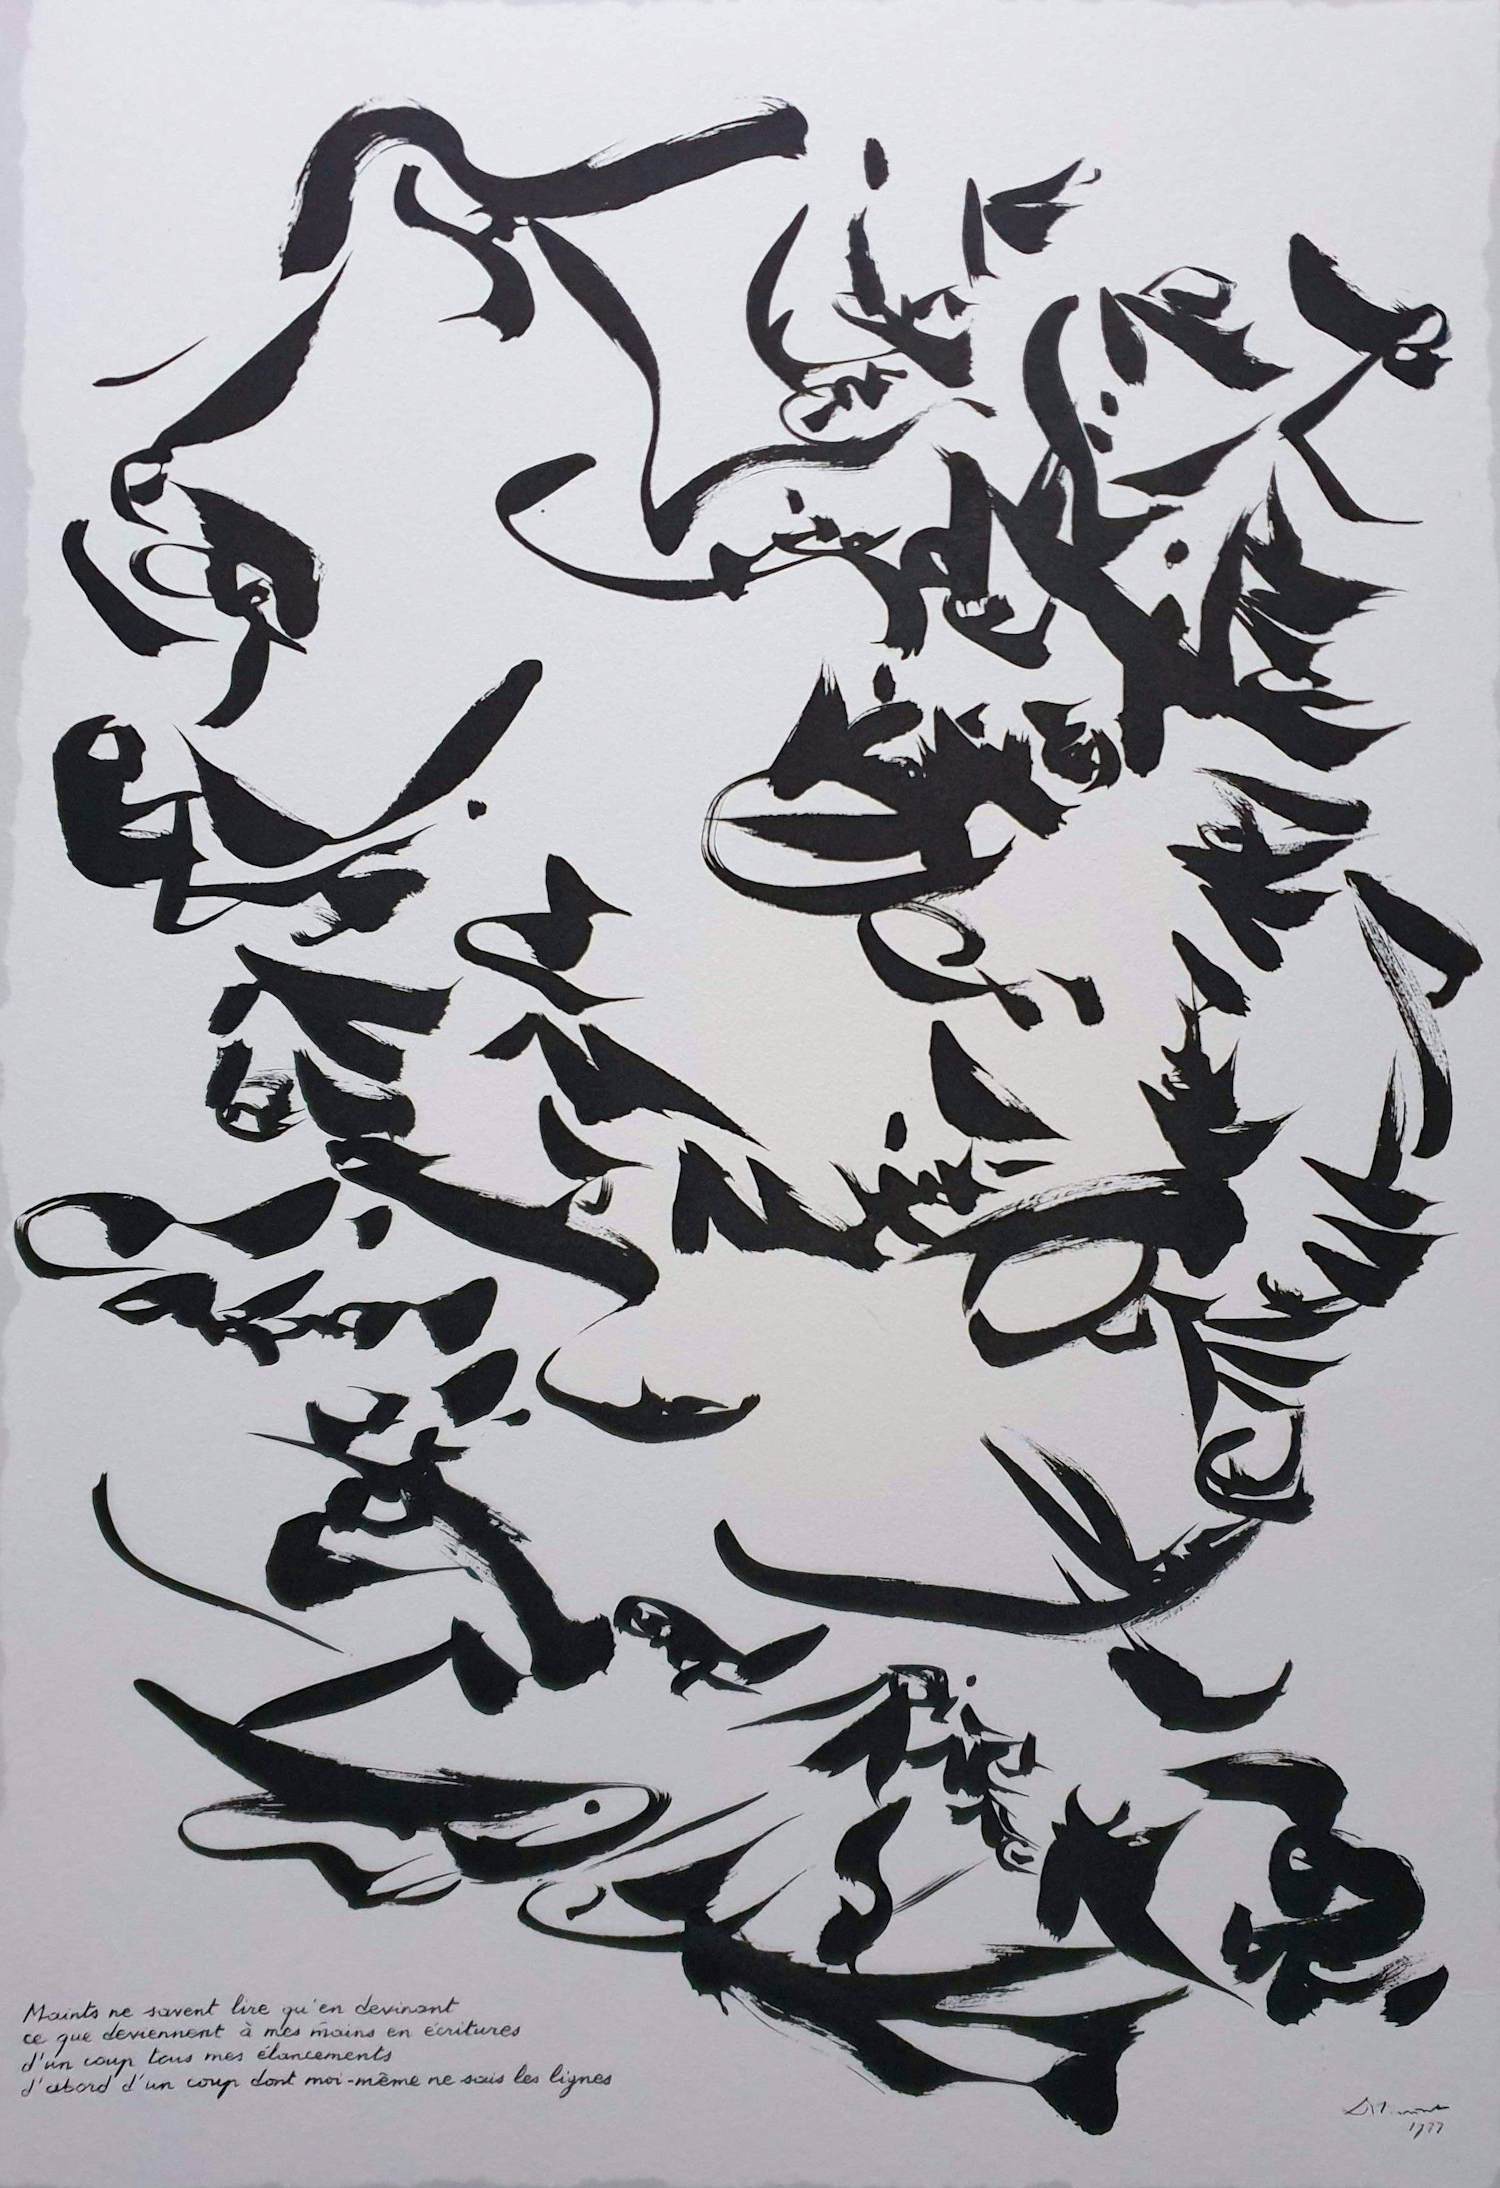 Maints ne savent lire qu'en devinant
ce que deviennent à mes mains en écritures
d'un coup tous mes élancements
d'abord d'un coup dont moi-même ne sais les lignes
1977